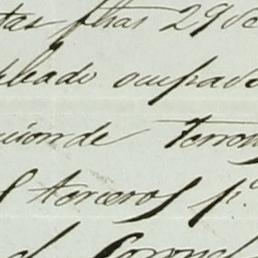 tas fhas 29 de
pleado ocupado
cion de Terron
terceros p.
el Coronel